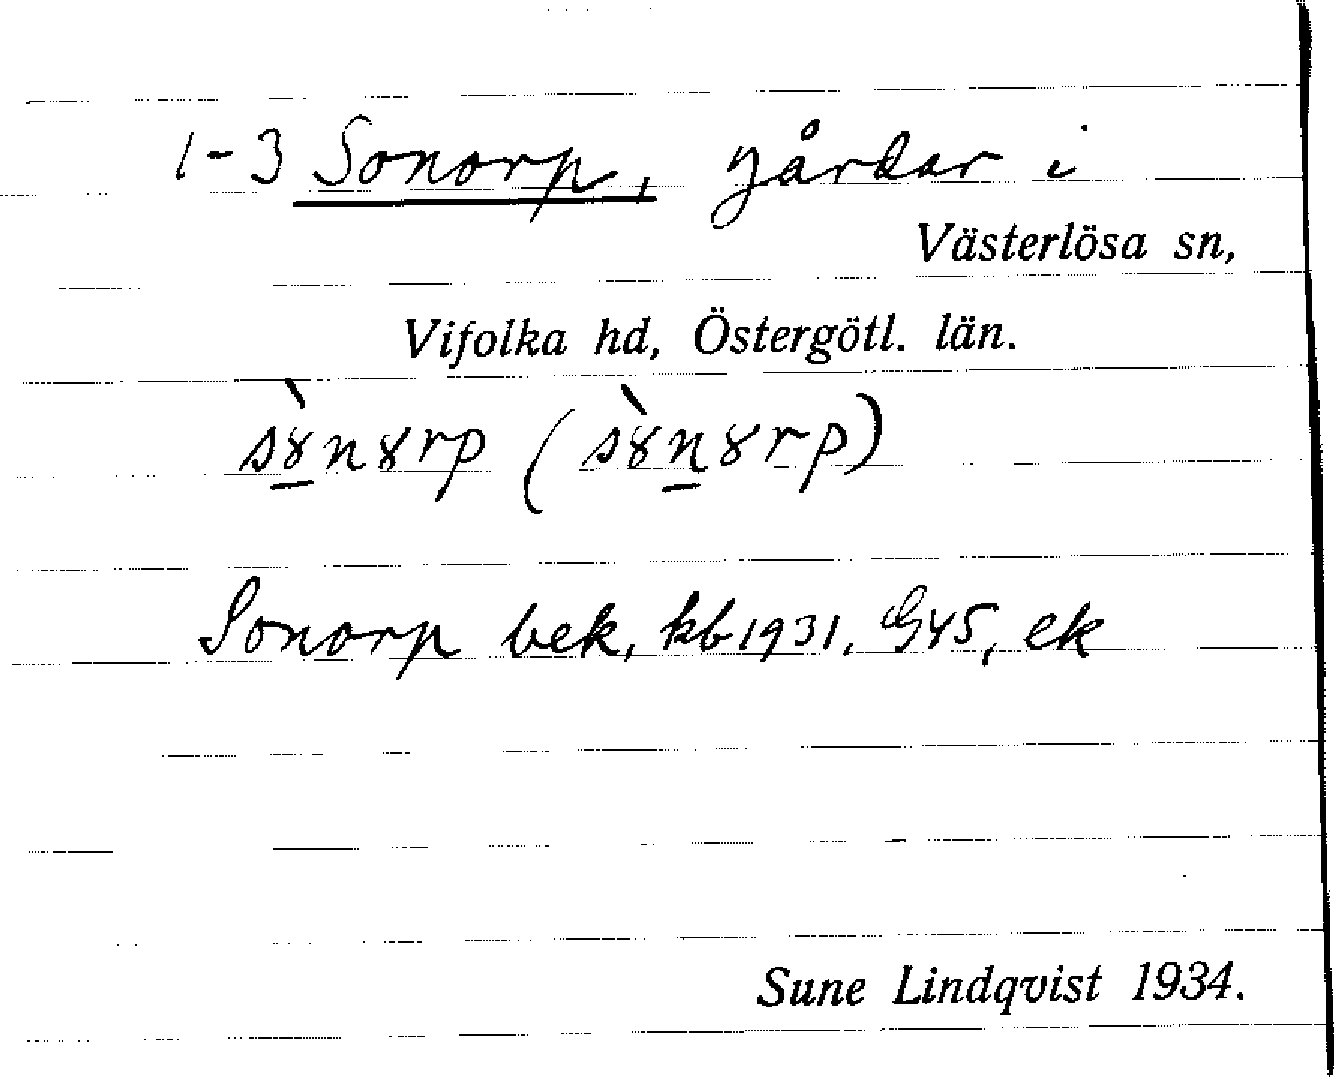 1-3 Sonorp, gårdar i
Västerlösa sn,
Vifolka hd, Östergötl. län.
sɤ̱̀nɤrp (sɤ̀ṉɤrp)
Sonorp bek, kb 1931, G45, ek
Sune Lindqvist 1934.